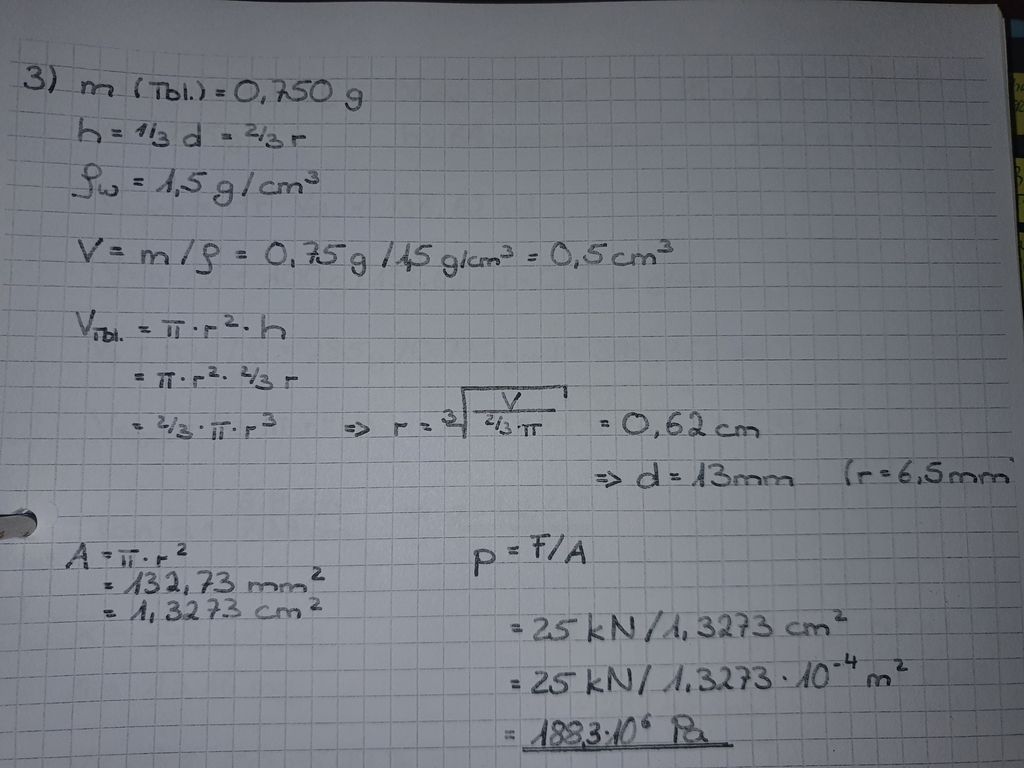 3) m (Tbl.) = 0,750 g
h = 1/3 d = 2/3 r
ρw = 1,5 g/cm³
V = m/ρ = 0,75 g / 1,5 g/cm³ = 0,5 cm³
VTbl. = π · r² · h
= π · r² · 2/3 r
= 2/3 · π · r³ => r = ³√(V / (2/3 · π)) = 0,62 cm
=> d = 13 mm (r = 6,5 mm
A = π · r²
= 132,73 mm²
= 1,3273 cm²
p = F/A
= 25 kN / 1,3273 cm²
= 25 kN / 1,3273 · 10⁻⁴ m²
= 188,3 · 10⁶ Pa